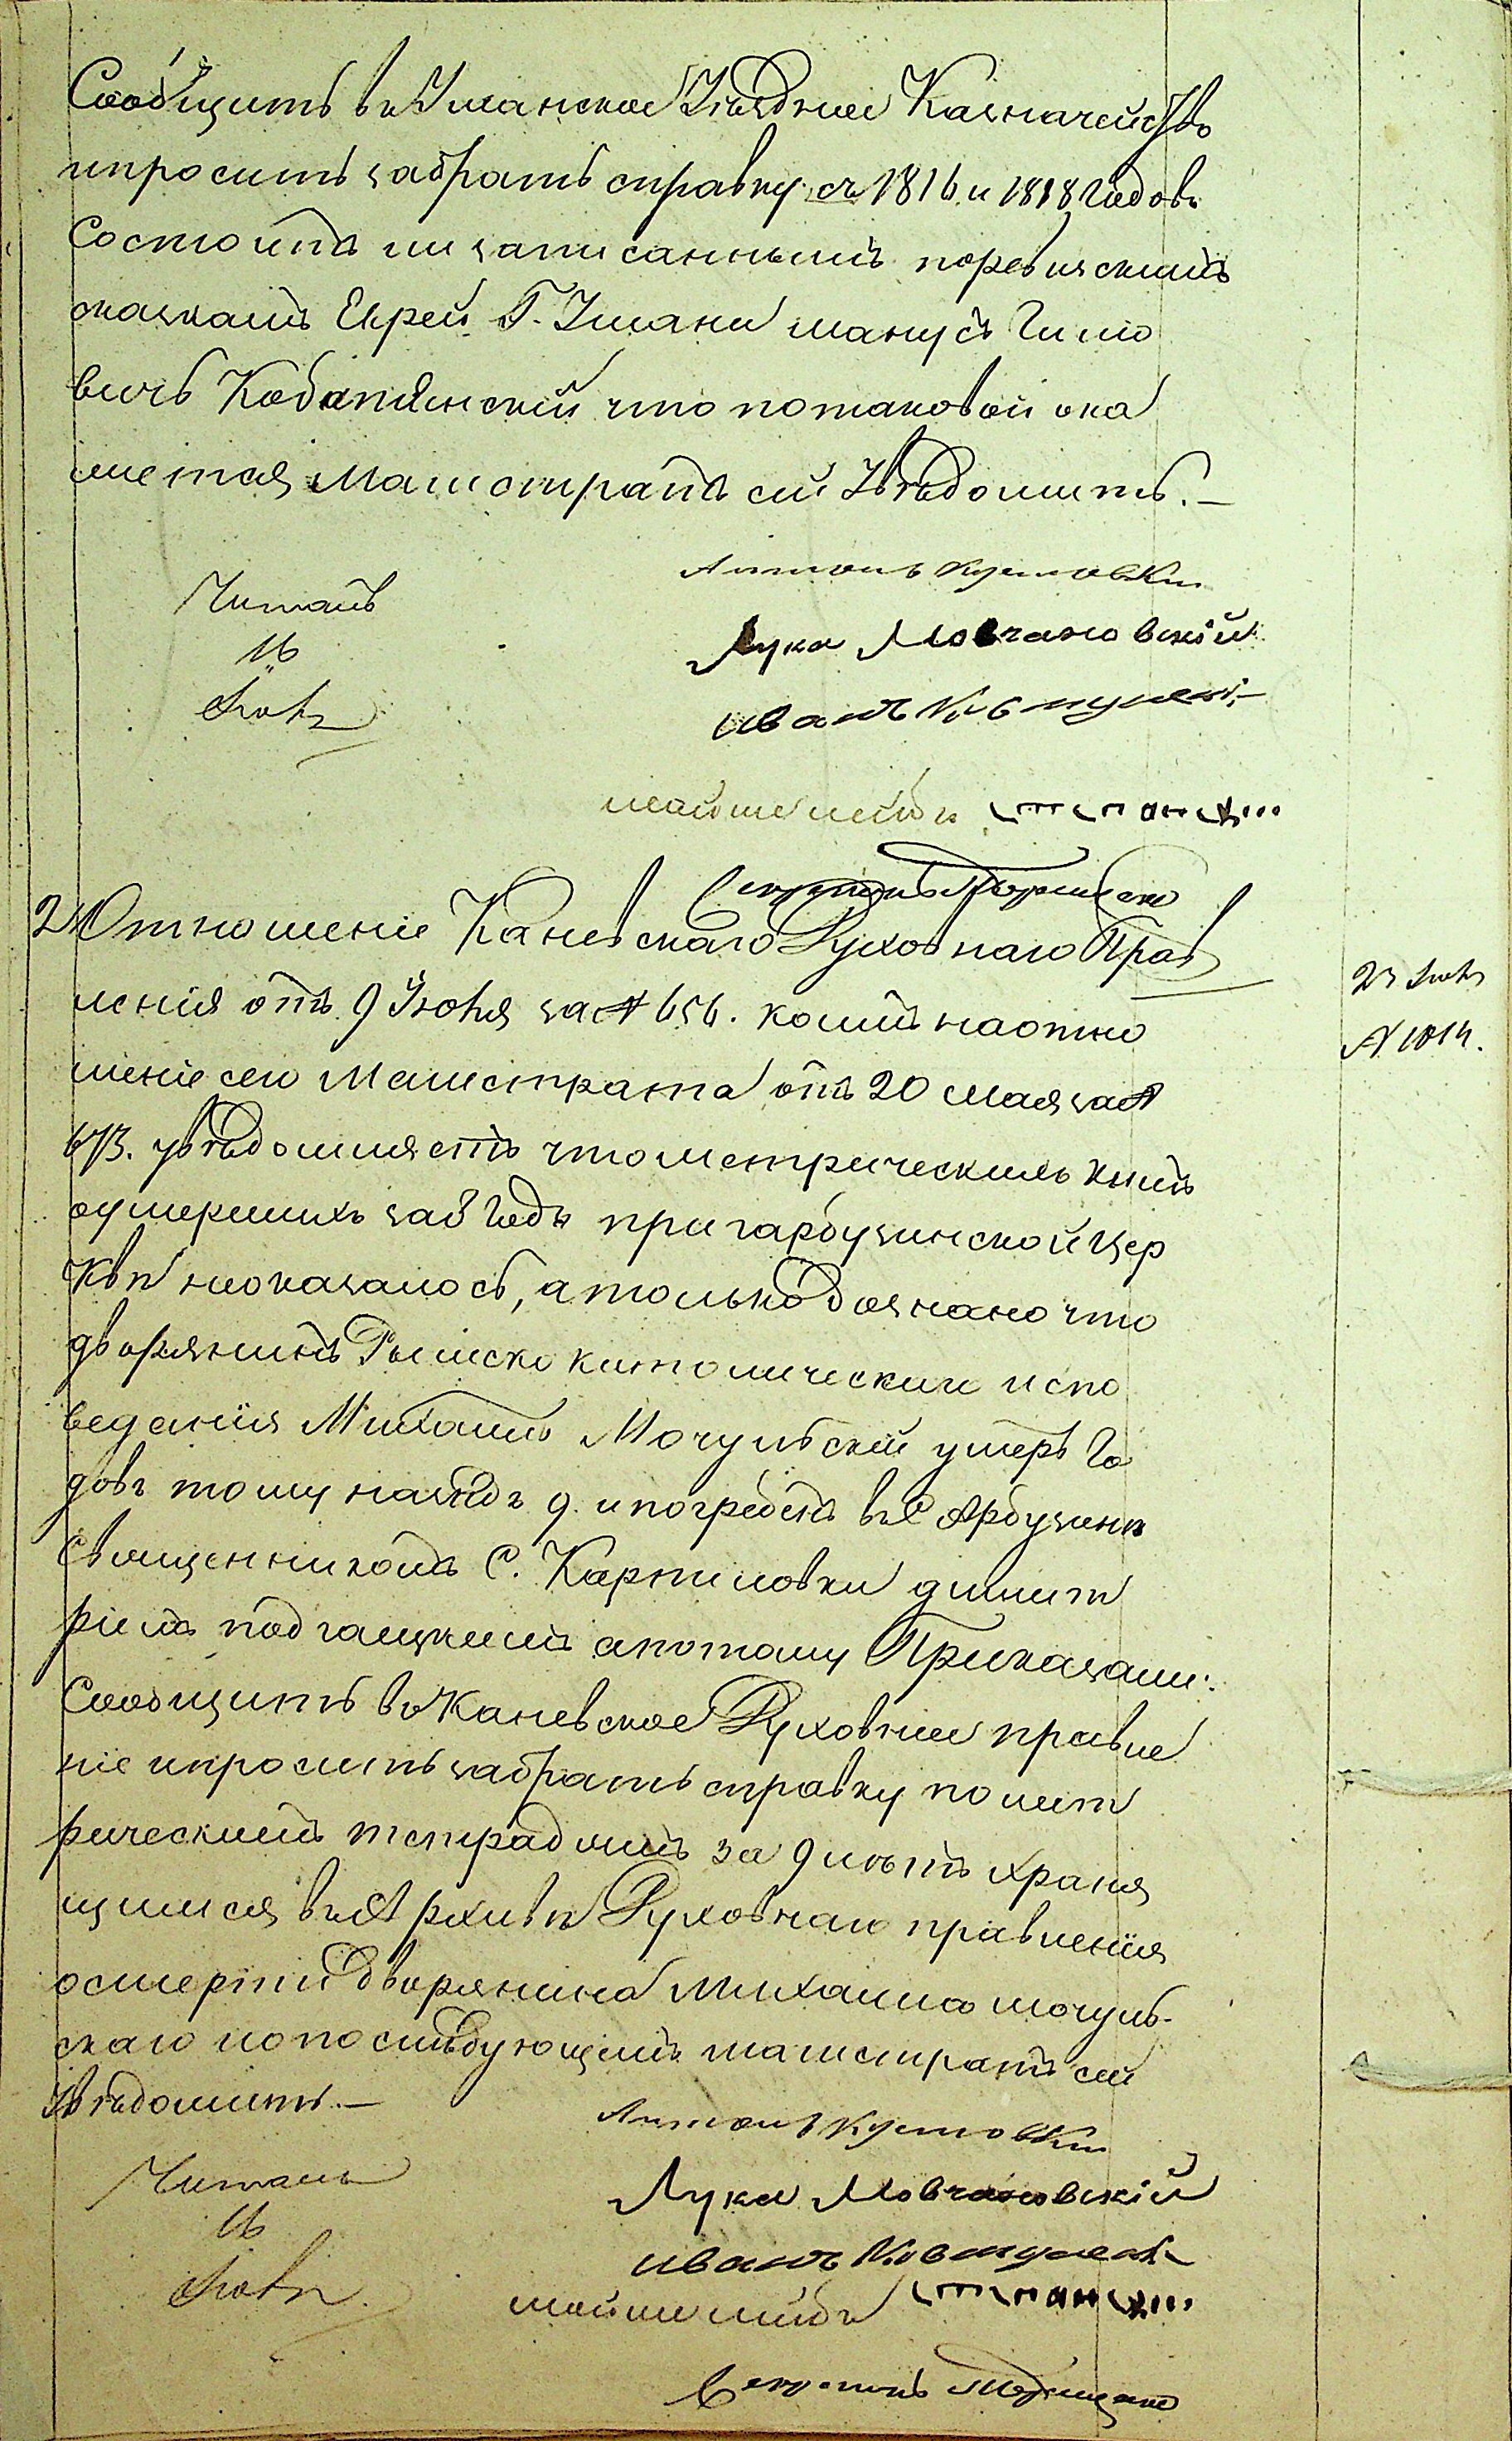 Сообщить въ Уманское Уѣздное Казначейство
ипросить забрать справку съ 1816 и 1818 годовъ
Состоитъ ли записаннымъ поревизскимъ
сказкамъ Еврей Г. Умани
вичь что потаковой ока
жется Магистратъ сей Увѣдомить. —
Читалъ
16
Лука Мовчановскій
иванъ
мойше лейбъ
Секретарь
2 Отношеніе Каневскаго Духовнаго Прав
ленія отъ 9 Іюня за № 656. коимъ наотно
шеніе сего Магистрата отъ 20 мая за №
673. увѣдомляетъ что метрическихъ книгъ
оумершихъ за 8 годъ пригарбузинской цер
кви неоказалось, атолько дознано что
дворянинъ Римско католическаго испо
веданія Михаилъ Мочульскій умеръ го
довъ тому назадъ 9. ипогребенъ въ С Арбузинѣ
Священникомъ С. Карпиловки димит
ріемъ апотому Приказали:
Сообщить въ Каневское Духовное правле
ніе ипросить забрать справку помет
рическимъ тетрадямъ за 9 лѣтъ храня
щимся въ Архивѣ Духовнаго правленія
осмерти дворянина Михаила мочуль-
скаго ипопослѣдующемъ магистратъ сей
Увѣдомить. —
23
№ 1014.
Читалъ
16
Лука Мовчановскій
иванъ
мойше лейбъ
Секретарь